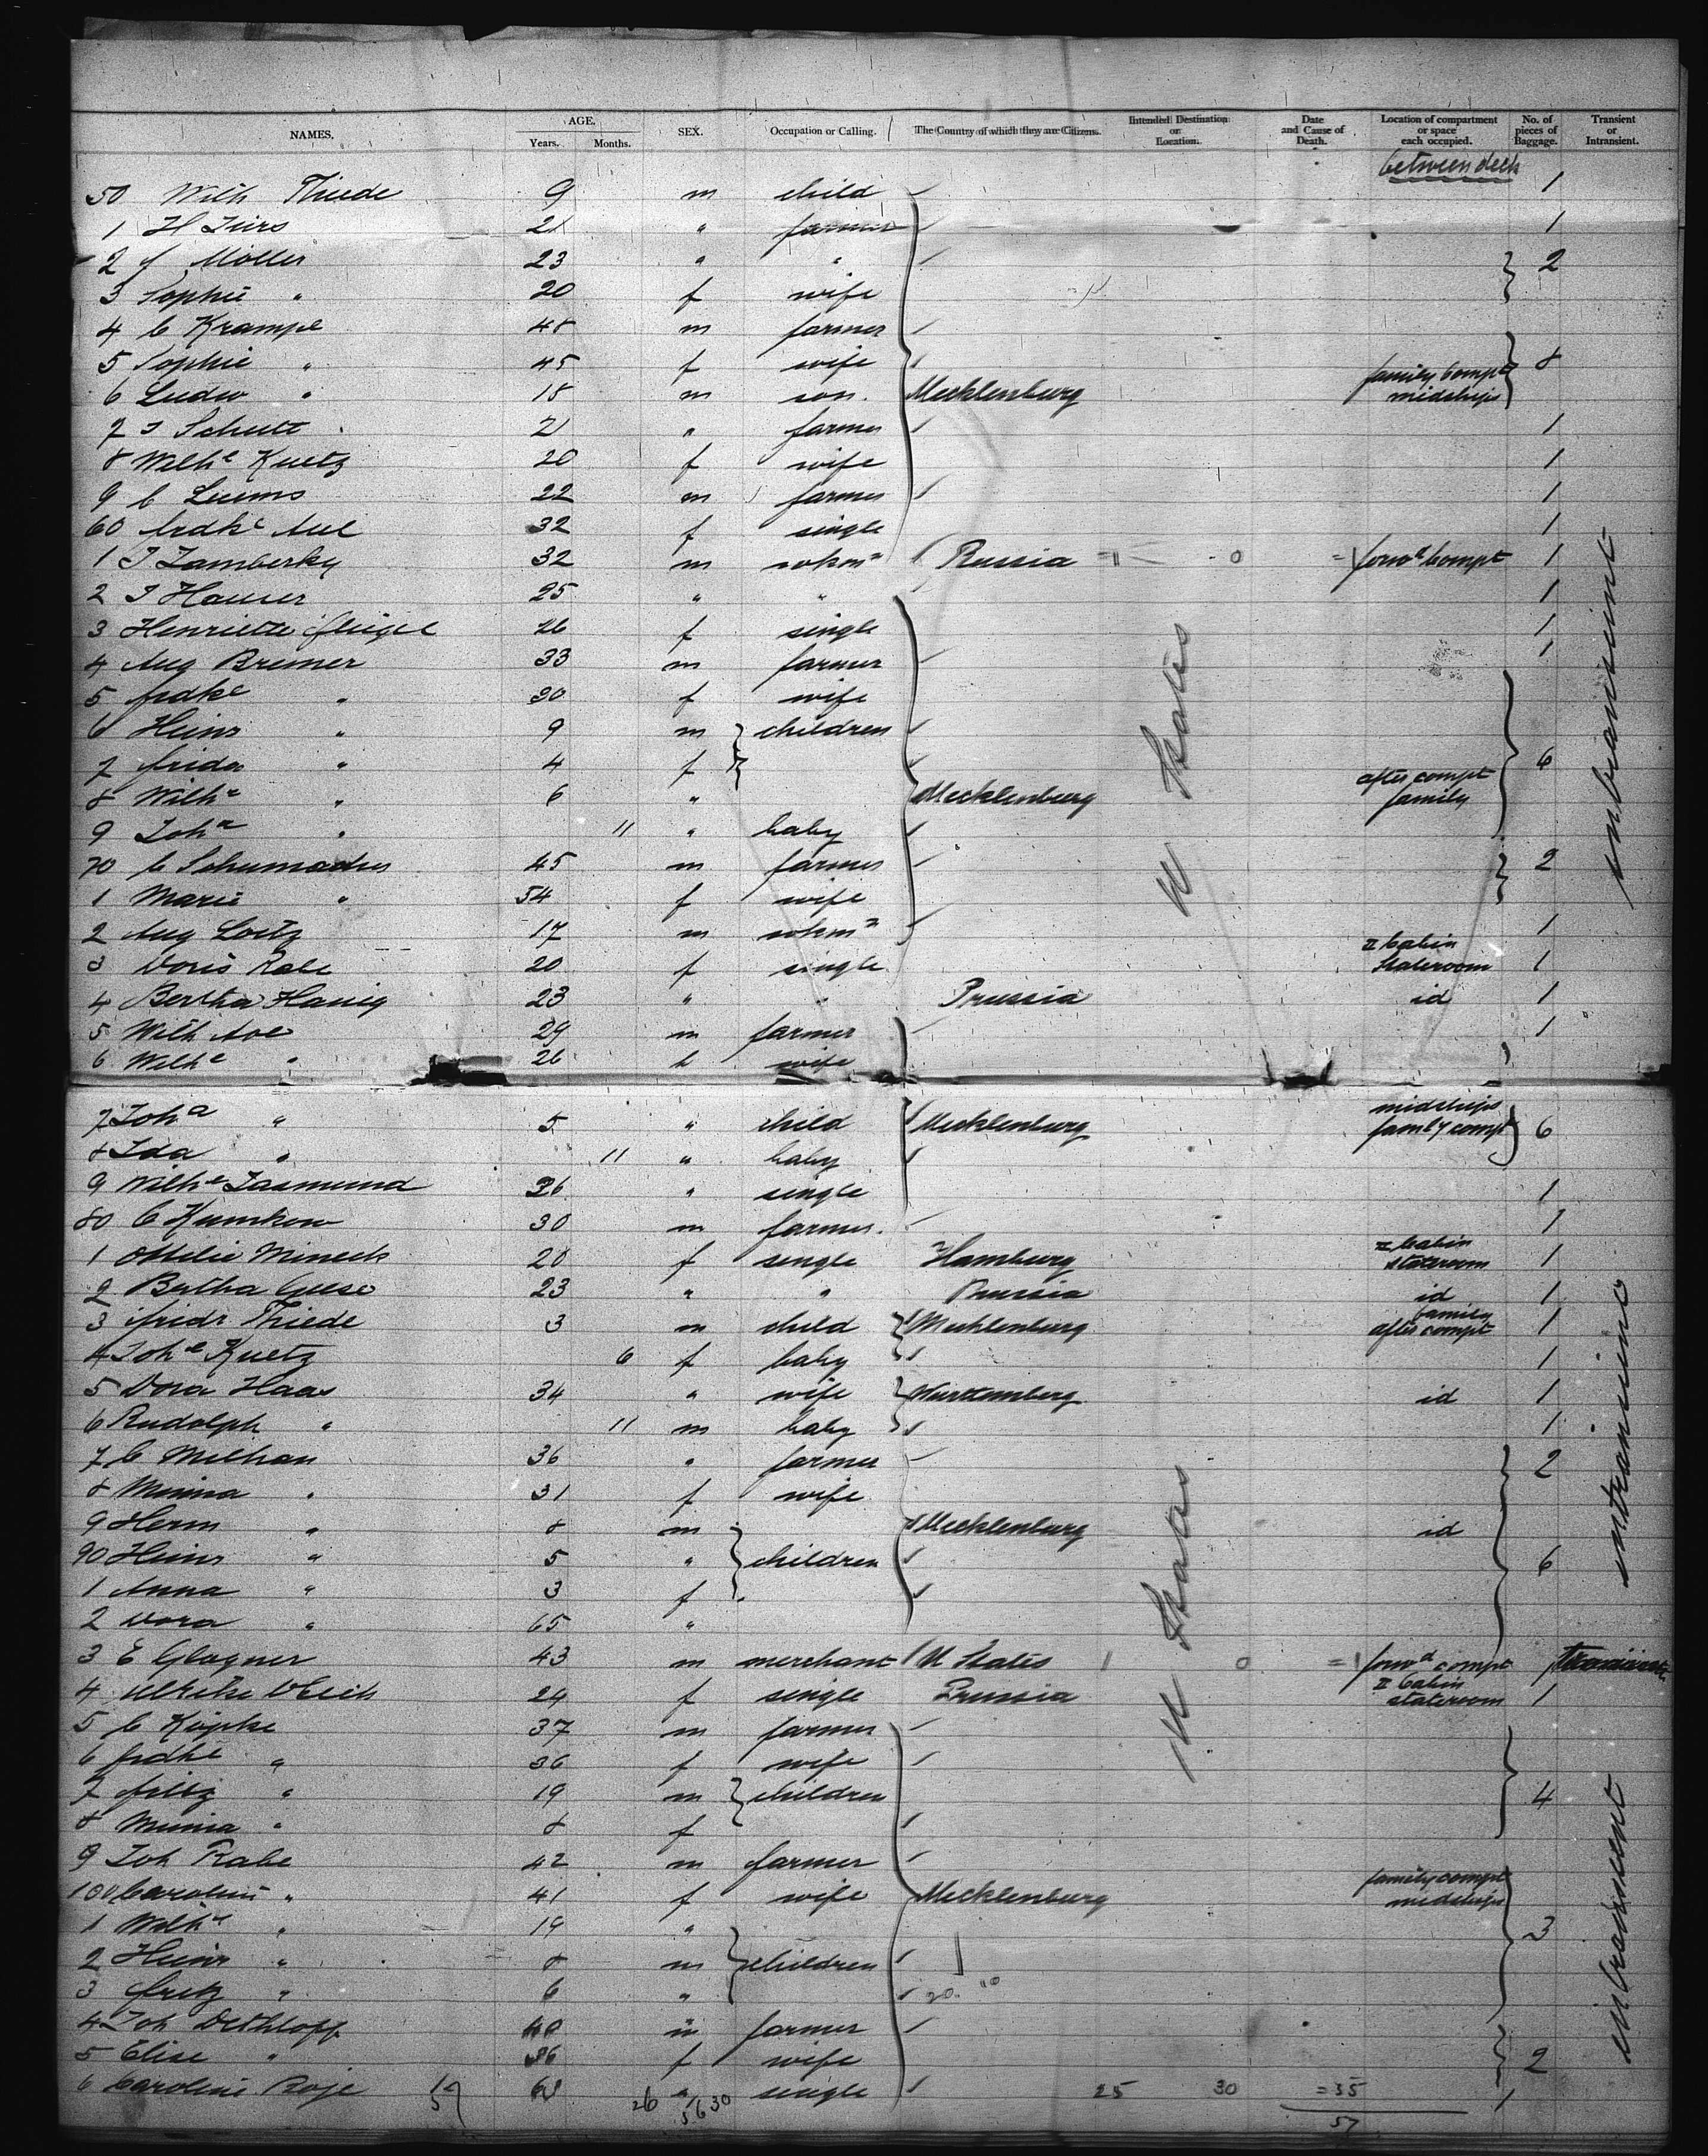 NAMES. AGE. Years. Months. SEX. Occupation or Calling. The Country of which they are Citizens. Intended Destination or Location. Date and Cause of Death. Location of compartment or space each occupied. No. of pieces of Baggage. Transient or Intransient.
between deck
50 Wilh Thiede 9 m child 1
1 H 21 " farmer 1
2 Möller 23 " " 2
3 Sophie " 20 f wife
4 C Krampe 48 m farmer
5 Sophie " 45 f wife 8
6 Ludw " 18 m son. Mecklenburg family Compt midships
7 Schult 21 " farmer 1
8 Wilhe Kuetz 20 f wife 1
9 C 22 m farmer 1
60 frdke Aue 32 f single 1
1 J Lamberky 32 m Russia 0 forwd Compt 1
2 J Hauser 25 " " 1
3 Henriette 26 f single 1
4 Aug Bremer 33 m farmer 1
5 frdke " 30 f wife
6 Heinr " 9 m children
7 frida " 4 f 6
8 Wilhe " 6 " Mecklenburg after compt family
9 Joha " 11 " baby
70 C Schumacher 45 m farmer 2
1 Marie " 54 f wife
2 Aug 17 m 1
3 Doris Rabe 20 f single II Cabin Stateroom 1
4 Bertha Hanig 23 " " Prussia id 1
5 Wilh 29 m farmer 1
6 Wilhe " 26 wife
7 Joha " 5 " child Mecklenburg midships family compt 6
8 Ida " 11 " baby
9 Wilhe Jasmund 26 " single 1
80 C Kumkow 30 m farmer. 1
1 Ottilie Mineck 20 f single Hamburg II Cabin stateroom 1
2 Bertha Geese 23 " " Prussia id 1
3 fridr Thiede 3 m child Mecklenburg family after compt 1
4 Johe Kuetz 6 f baby 1
5 Dora Haas 34 " wife Wurtemberg id 1
6 Rudolph " 11 m baby 1
7 C Milhan 36 " farmer 2
8 Minna " 31 f wife
9 Herm " 8 m Mecklenburg id
90 Heinr " 5 " children 6
1 Anna " 3 f
2 Dora " 65 "
3 E Glagner 43 m merchant U States 1 0 =1 forwd compt
4 Ulrike 24 f single Prussia II Cabin stateroom 1
5 C Köpke 37 m farmer
6 frdke " 36 f wife
7 " 19 m children 4
8 Minna " 8 f
9 Joh Rabe 42 m farmer
100 Caroline " 41 f wife Mecklenburg family compt midships
1 Wilhe " 19 " 3
2 Heinr " 8 m children
3 fritz " 6 "
4 Joh Dethloff 40 m farmer
5 Elise " 36 f wife 2
6 Caroline Boje " single 25 30 =35 1
26 5630
57
U States
U States
intransient
intransient
intransient